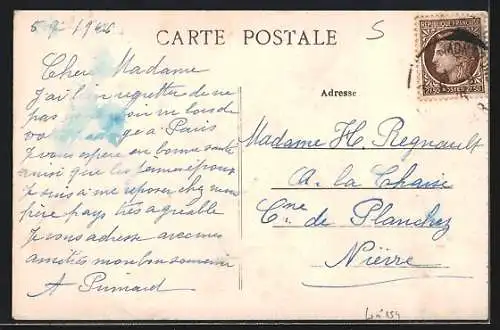 5 9 1946
CARTE POSTALE
S
RÉPUBLIQUE FRANÇAISE
2F50 POSTES 2F50
Adresse
Chere Madame
J'ai bien regretter de ne
pas voir lors de
a Paris
Je vous espère en bonne santé
ainsi que
Je suis a me reposer chez mon
père pays très agréable
Je vous adresse avec mes
amitiés mon bon souvenir
A
Madame H. Regnault
a. la Chaise
Cne de Planchez
Nièvre